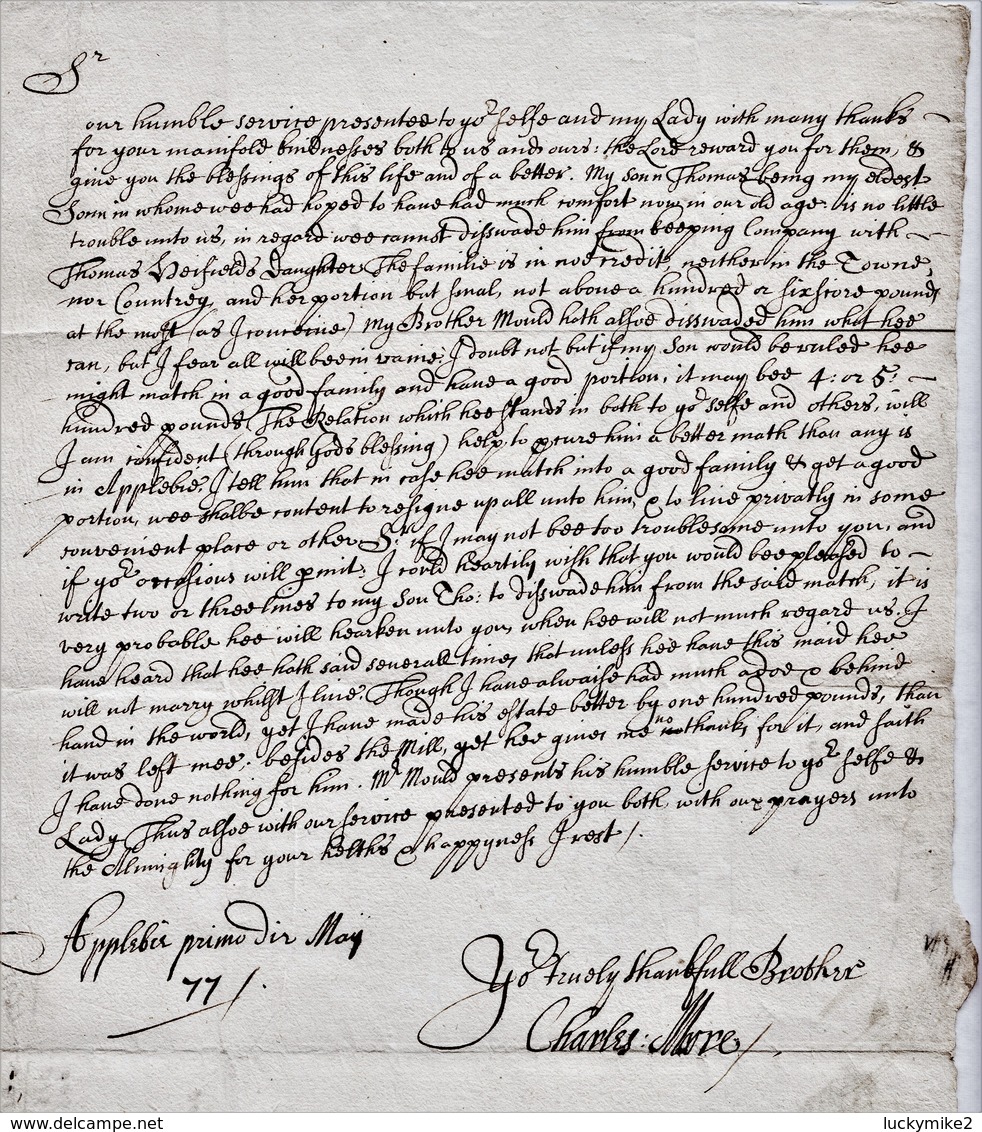 Sr
our humble service presented to yor selfe and my Lady with many thanks
for your manifold kindnesses both to us and ours: the Lord reward you for them, &
give you the blessings of this life and of a better. My sonn Thomas being my eldest
Sonn in whome wee had hoped to have had much comfort now in our old age, is no little
trouble unto us, in regard wee cannot disswade him from keeping Company with
Thomas Heifields Daughter. The familie is in noe credit, neither in the Towne,
nor Countrey, and her portion but smal, not above a hundred or sixscore pounds
at the most (as I conceive) My Brother Mould hath alsoe disswaded him what hee
can, but I fear all will bee in vaine; I doubt not but if my Son would be ruled hee
might match in a good family and have a good portion, it may bee 4: or 5:
hundred pounds, The Relation which hee stands in both to yor selfe and others, will
I am confident (through Gods blessing) help to pcure him a better math than any is
in Applebie, I tell him that in case hee match into a good family & get a good
portion, wee shalbe content to resigne up all unto him, & to live privatly in some
convenient place or other. Sr if I may not bee too troublesome unto you, and
if yor occasions will pmit, I could heartily wish that you would bee pleased to
write two or three lines to my Son Tho: to disswade him from the said match, it is
very probable hee will hearken unto you, when hee will not much regard us. I
have heard that hee hath said severall times that unless hee have this maid hee
will not marry whilst I live. Though I have alwaise had much adoe & behind
hand in the world, yet I have made his estate better by one hundred pounds, than
it was left mee, besides the Mill, yet hee gives me no thanks for it, and saith
I have done nothing for him. Mr Mould presents his humble service to yor selfe &
Lady, Thus alsoe with our service presented to you both with our prayers unto
the Almighty for your helths & happyness I rest /.
Applebie primo die Maij
77 /.
Yor truely thankfull Brother
Charles: Moore /.
delcampe.net
luckymike2